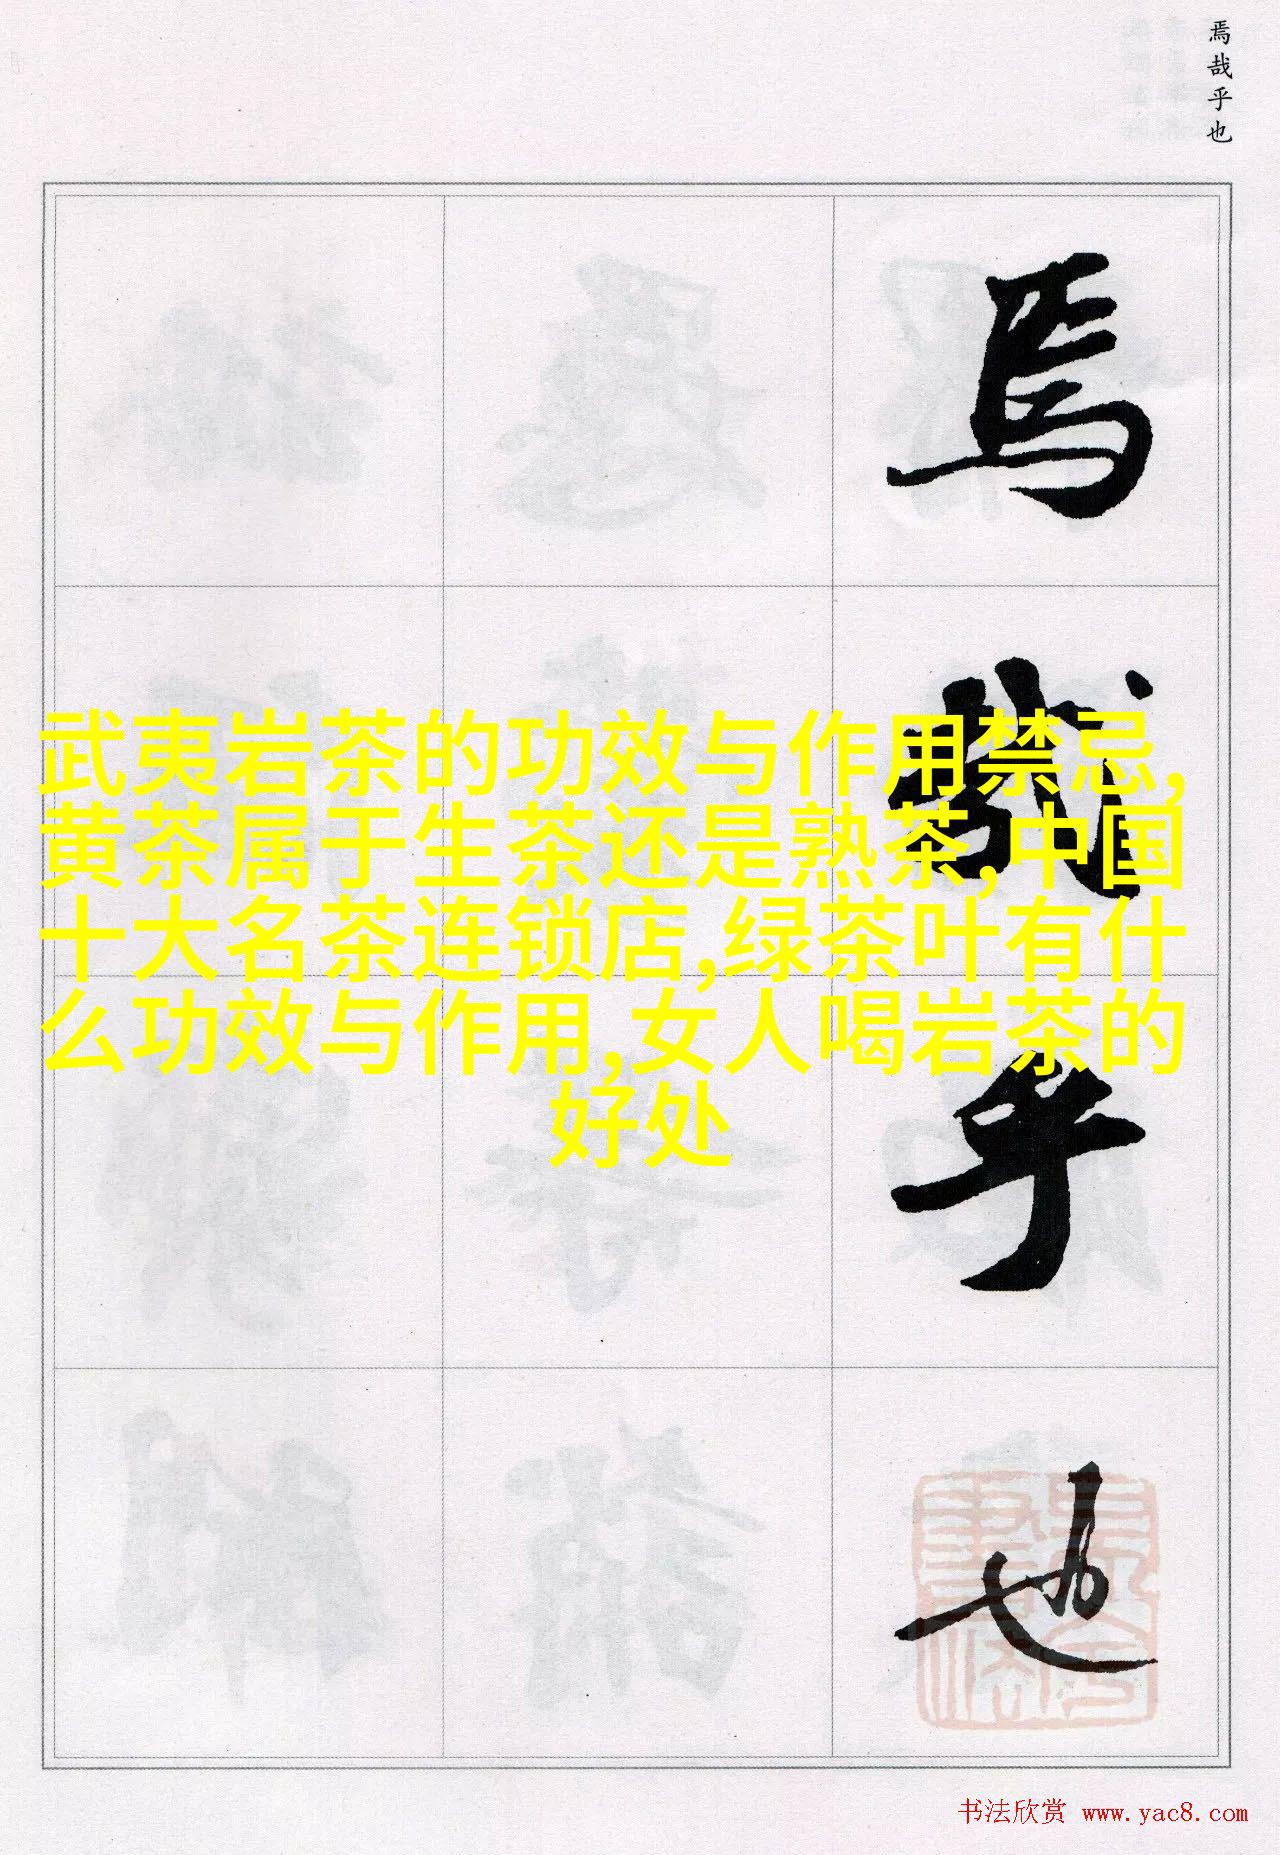 焉哉乎也
焉
哉
乎
也
武夷岩茶的功效与作用禁忌,
黄茶属于生茶还是熟茶,中国
十大名茶连锁店,绿茶叶有什
么功效与作用,女人喝岩茶的
好处
书法欣赏 www.yac8.com